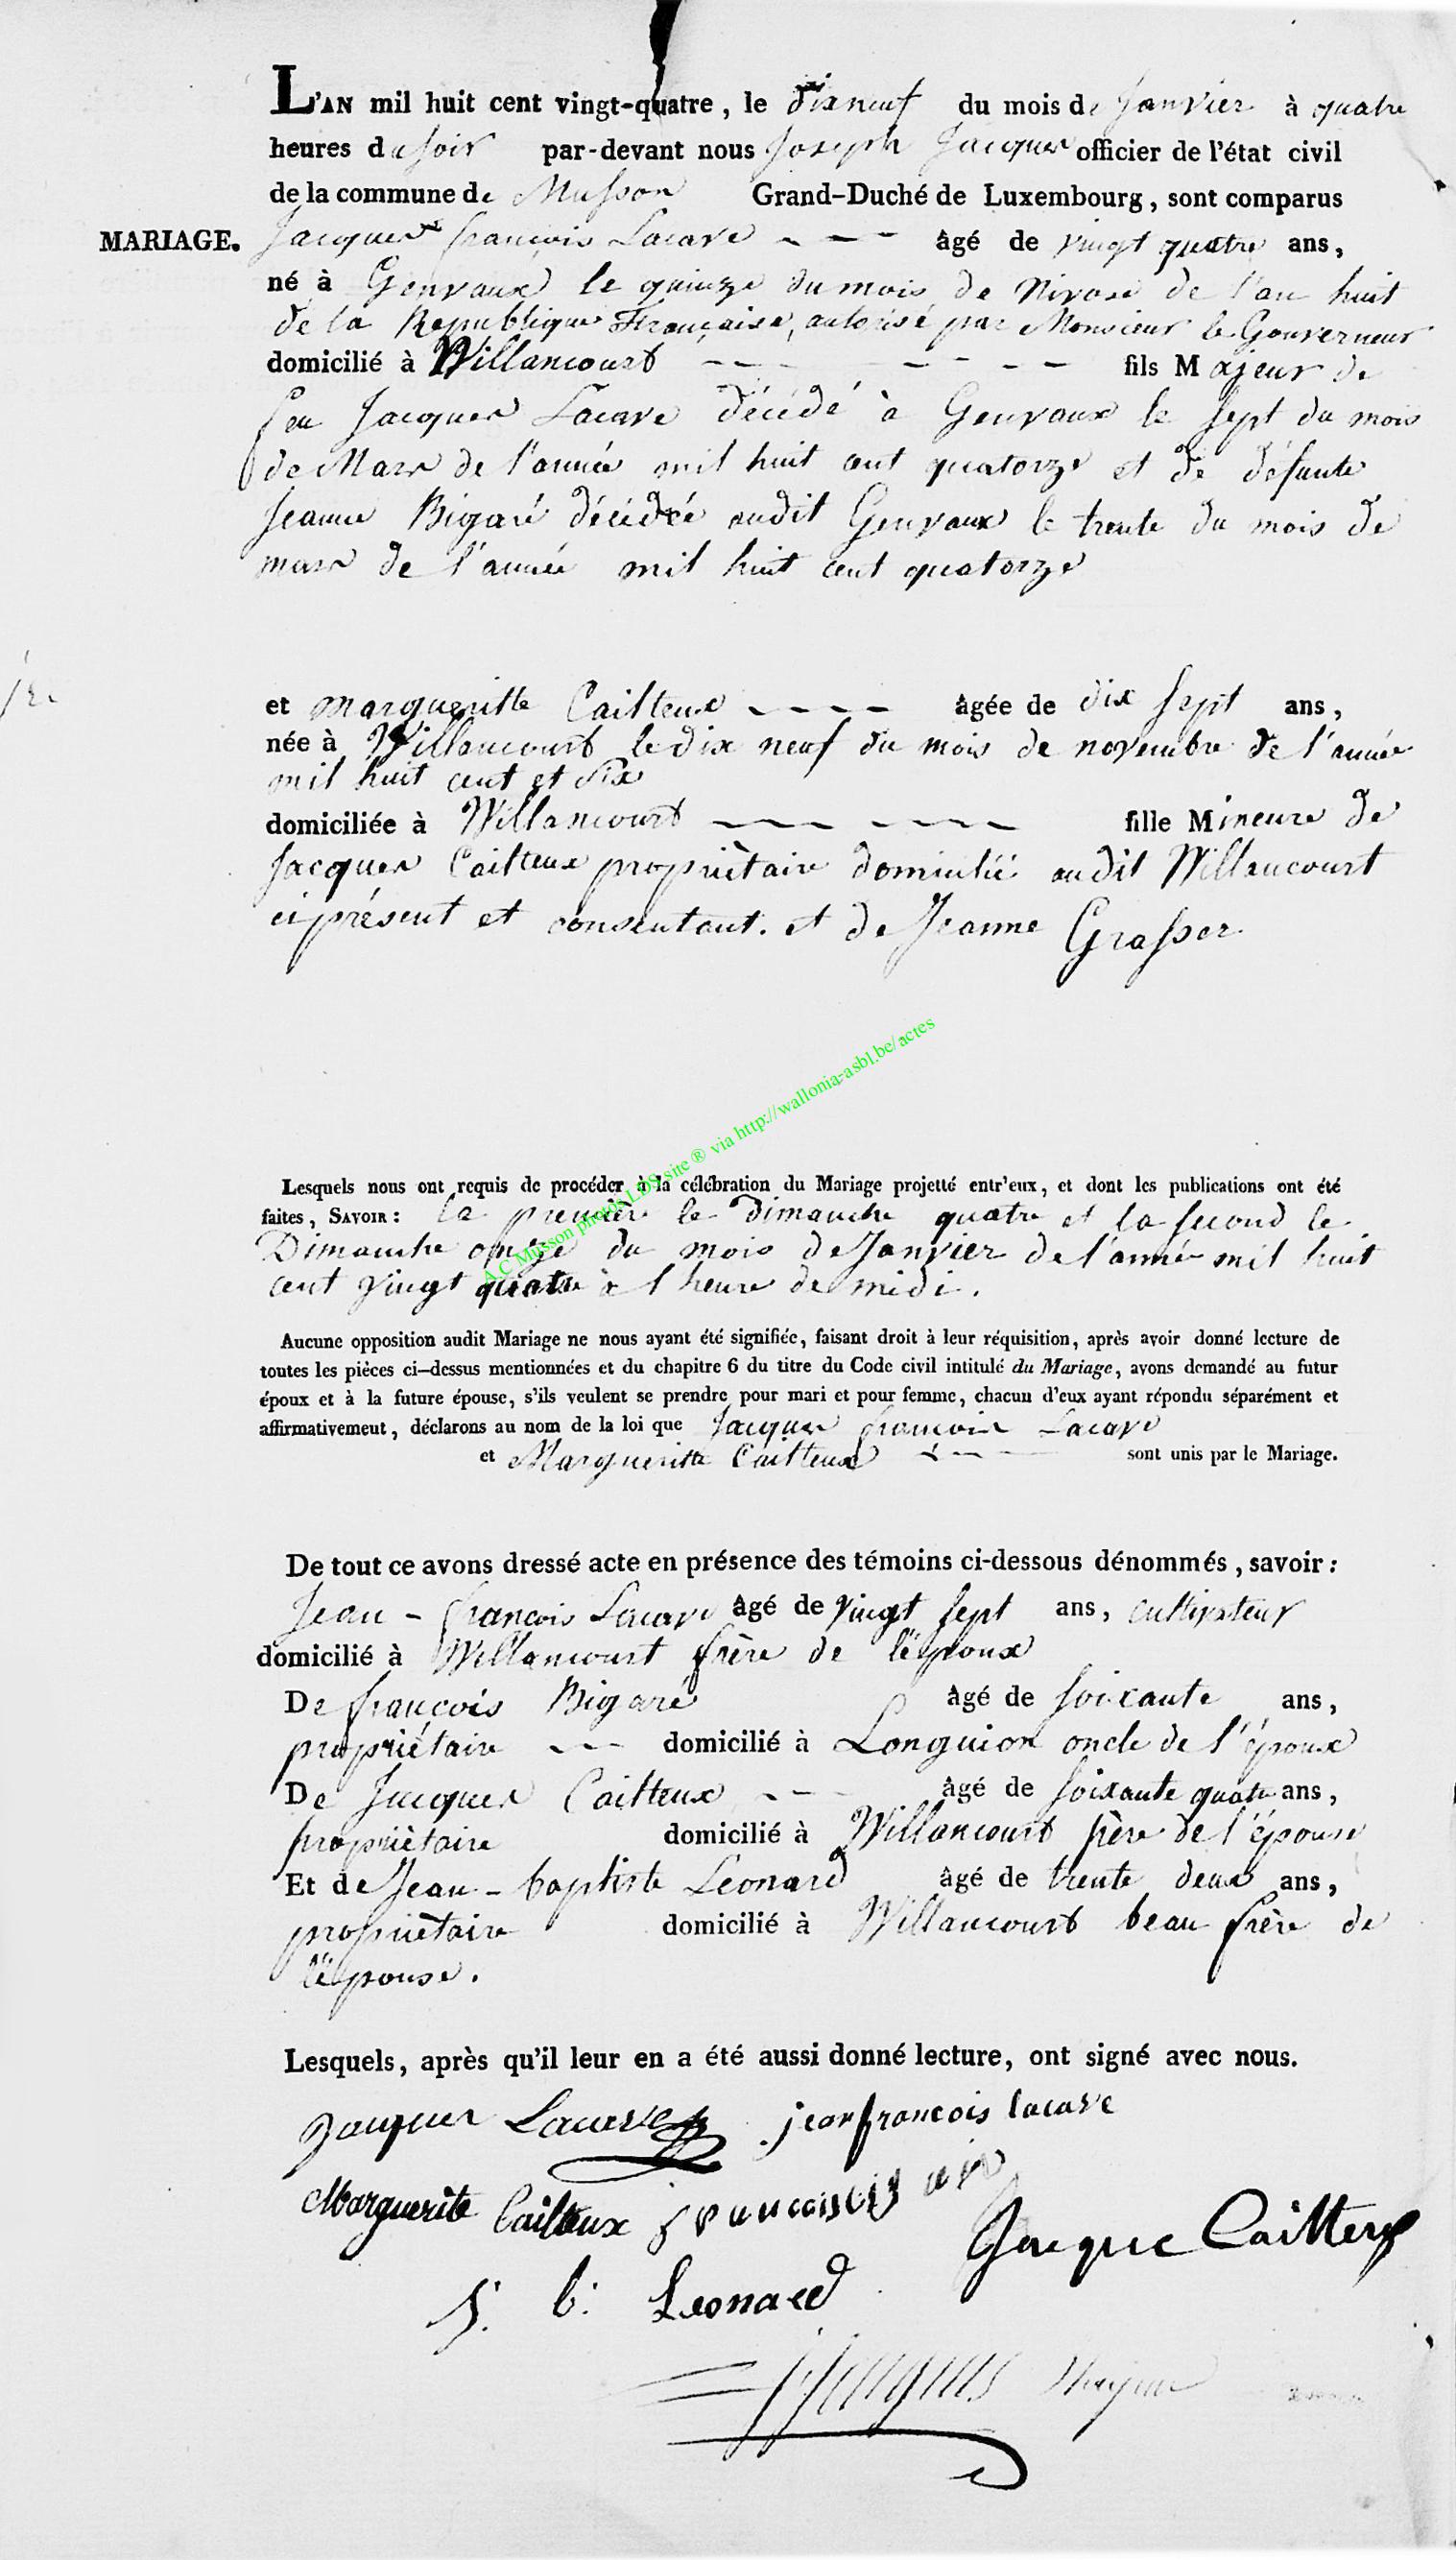 L'AN mil huit cent vingt-quatre, le dixneuf du mois de Janvier à quatre
heures du soir par-devant nous Joseph Jacques officier de l'état civil
de la commune de Musson Grand-Duché de Luxembourg, sont comparus
MARIAGE. Jacques françois Lacave âgé de vingt quatre ans,
né à Genvaux le quinze du mois de Nivose de l'an huit
de la Republique Française, autorisé par Monsieur le Gouverneur
domicilié à Willancourt fils Majeur de
feu Jacques Lacave décédé à Genvaux le sept du mois
de Mars de l'année mil huit cent quatorze et de défunte
Jeanne Bigaré décédée audit Genvaux le trente du mois de
mars de l'année mil huit cent quatorze
et margueritte Cailteux âgée de dix sept ans,
née à Willancourt le dix neuf du mois de novembre de l'année
mil huit cent et six
domiciliée à Willancourt fille Mineure de
Jacques Cailteux propriètaire domicilié audit Willancourt
ci présent et consentant. et de Jeanne Grasser.
A.C Musson photos LDS site ® via http://wallonia-asbl.be/actes
Lesquels nous ont requis de procéder à la célébration du Mariage projetté entr'eux, et dont les publications ont été
faites, SAVOIR : la premiere le Dimanche quatre et la second le
Dimanche onze du mois de Janvier de l'année mil huit
cent vingt quatre à l heure de midi.
Aucune opposition audit Mariage ne nous ayant été signifiée, faisant droit à leur réquisition, après avoir donné lecture de
toutes les pièces ci-dessus mentionnées et du chapitre 6 du titre du Code civil intitulé du Mariage, avons demandé au futur
époux et à la future épouse, s'ils veulent se prendre pour mari et pour femme, chacun d'eux ayant répondu séparément et
affirmativement, déclarons au nom de la loi que Jacques francois Lacave
et Margueritte Cailteux sont unis par le Mariage.
De tout ce avons dressé acte en présence des témoins ci-dessous dénommés, savoir :
Jean - françois Lacave âgé de vingt sept ans, cultivateur
domicilié à Willancourt frère de l'époux
De françois Bigaré âgé de soixante ans,
propriétaire domicilié à Longuion oncle de l'époux
De Jacques Cailteux âgé de soixante quatre ans,
propriètaire domicilié à Willancourt père de l'épouse
Et de Jean - baptiste Leonard âgé de trente deux ans,
propriètaire domicilié à Willancourt beau frère de
l'épouse.
Lesquels, après qu'il leur en a été aussi donné lecture, ont signé avec nous.
Jacques Lacave jean francois lacave
Marguerite Cailteux
Jacque Cailteux
J. b. Leonard
Jacques